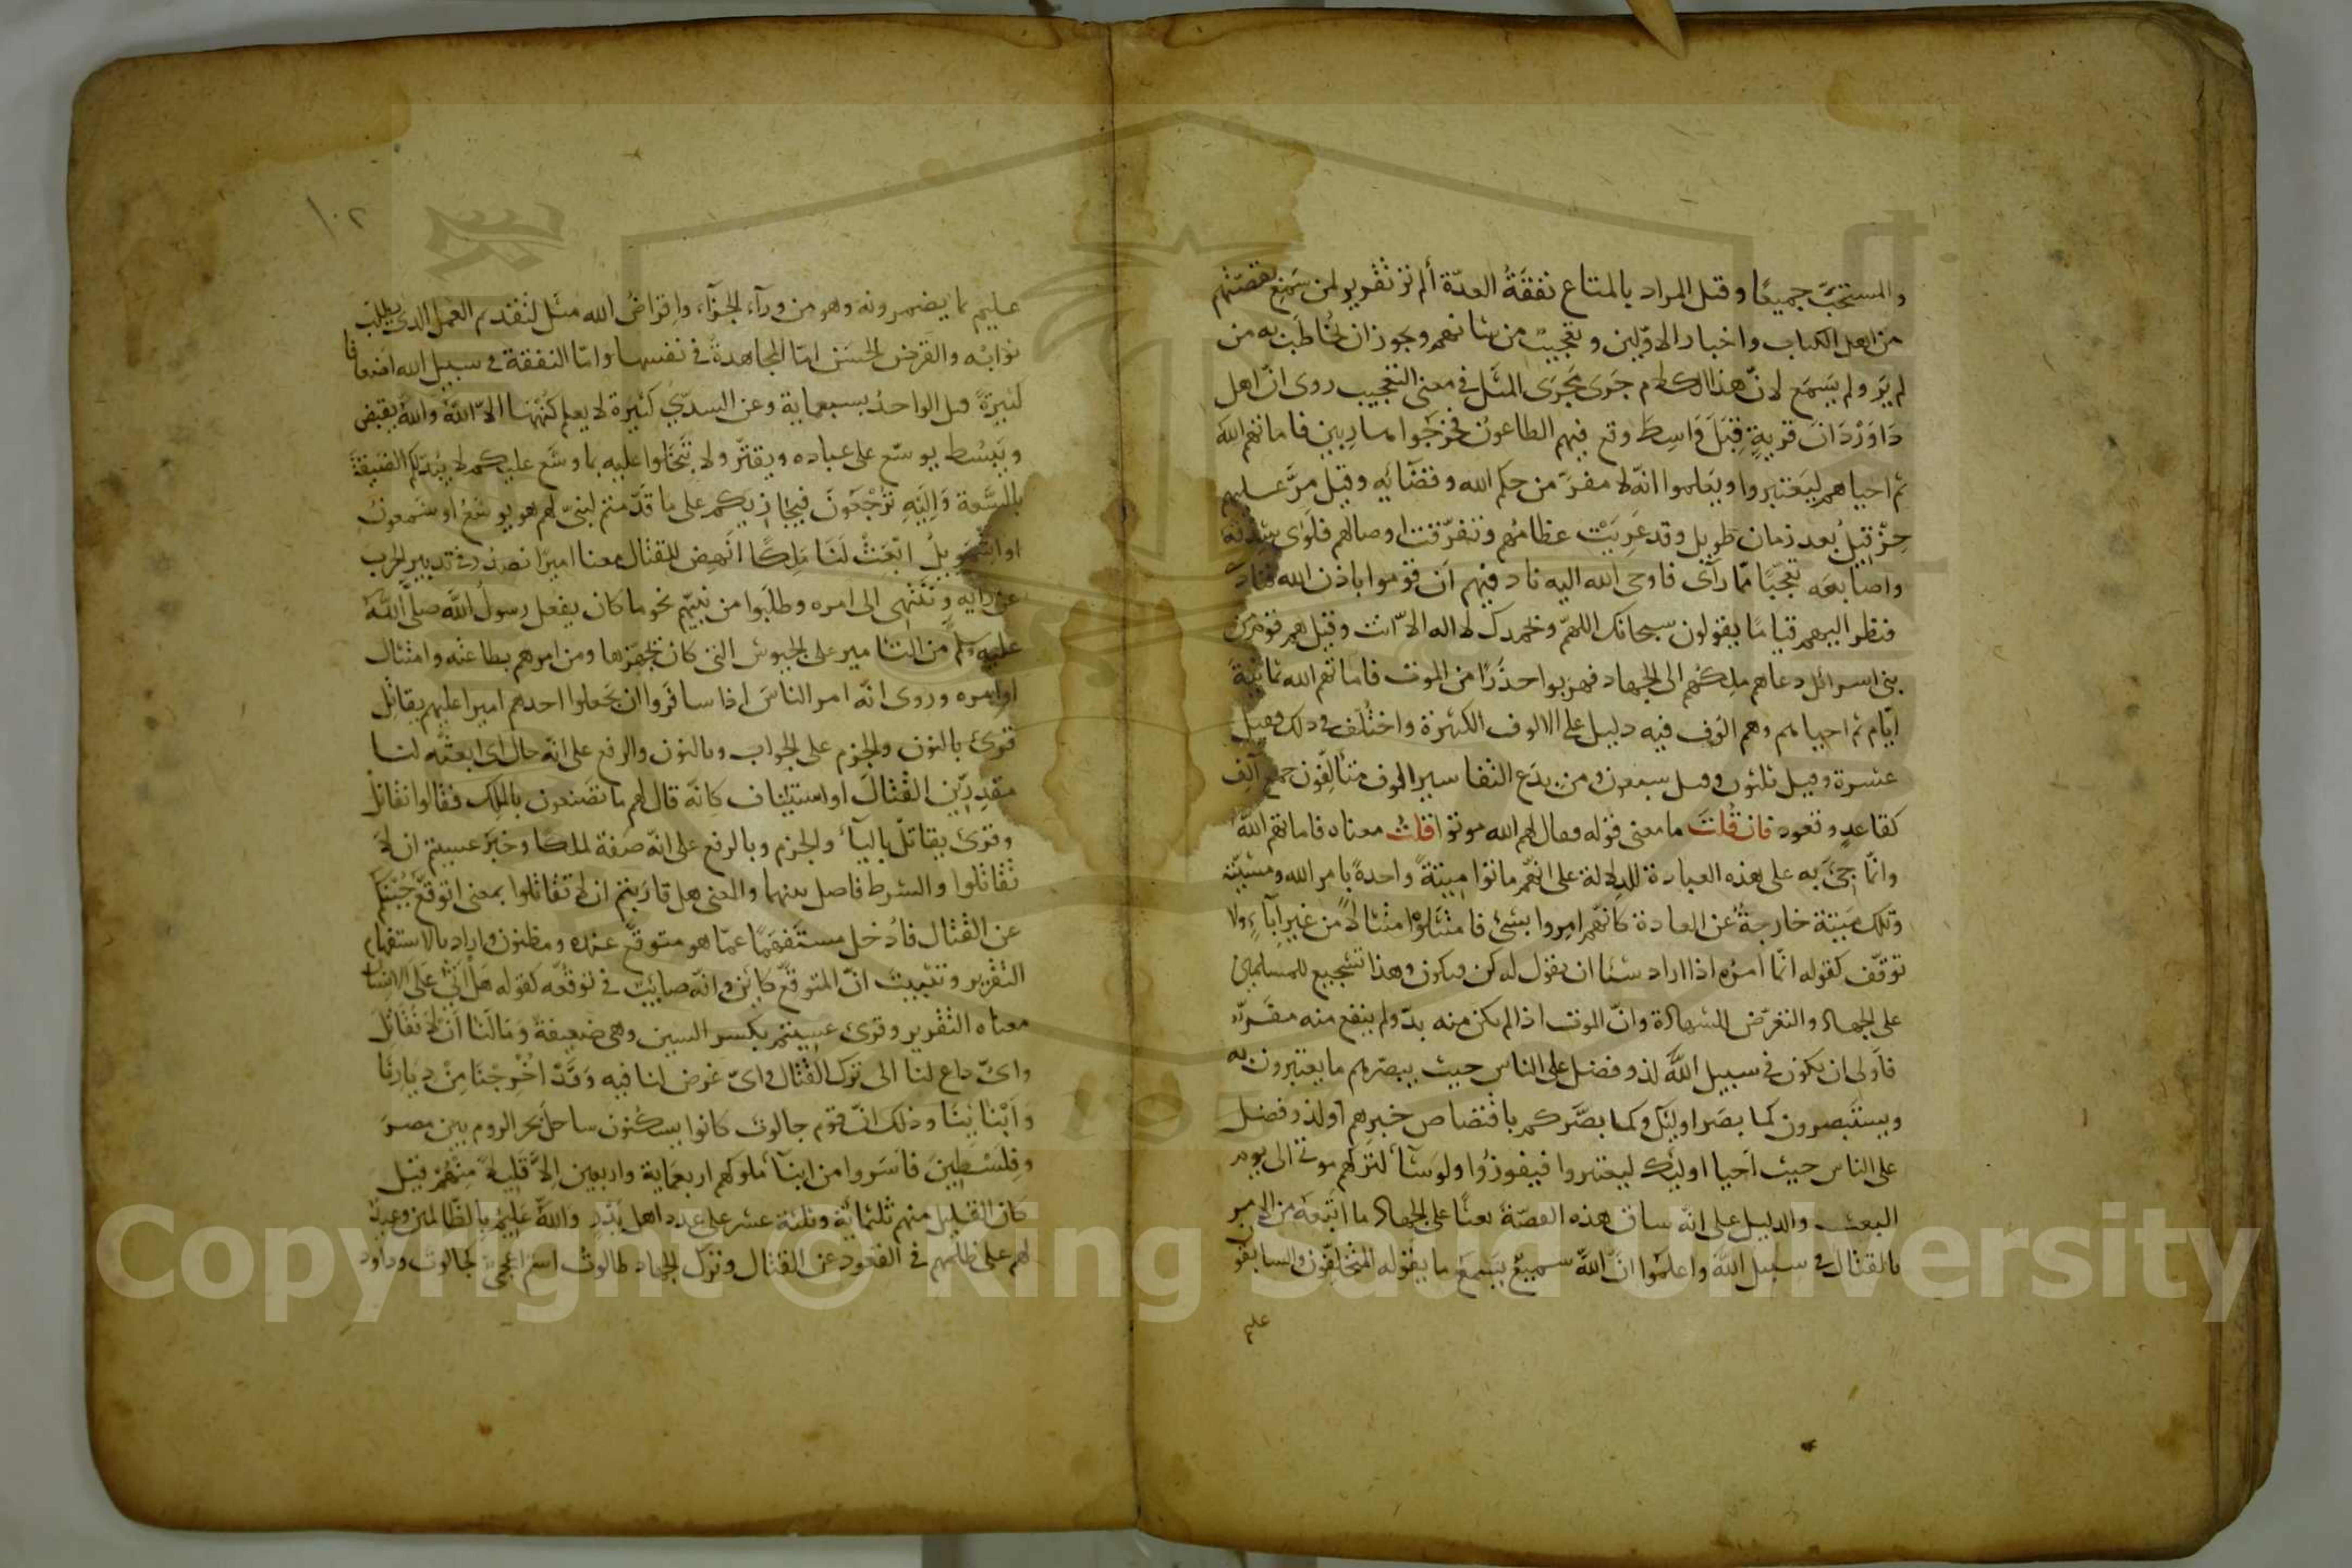 والمستحبّ جميعًا وقيل المراد بالمتاع نفقةُ العدّة ألم تر تقرير لمن سَمِعَ بقصّتهم
من اهل الكتاب واخبار الاوّلين وتعجيبٌ من شانهم ويجوز ان يُخاطَب به من
لم يَرَ ولم يَسمَع لانّ هذا الكلام جَرى مَجرَى المثَل في معنى التعجيب روى انّ اهل
دَاوَرْدَانَ قريةٍ قِبَلَ وَاسِطَ وقع فيهم الطاعون فخرَجُوا هاربين فاماتهم الله
ثم احياهم ليَعتبروا ويَعلموا انّه لا مفرّ من حكم الله وقضائه وقيل مرّ عليهم
حِزْقِيلُ بعد زمان طويل وقد عَرِيَتْ عظامُهم وتفرّقت اوصالهم فلَوَى شِدْقَه
واصابعَه تعجّبًا ممّا رآى فاوحى الله اليه نادِ فيهم اَن قوموا باذن الله فنادى
فنظر اليهم قيامًا يقولون سبحانك اللهمّ وبحمدك لا اله الاّ انت وقيل هم قوم من
بنى اسرائل دعاهم ملِكُهم الى الجهاد فهربوا حذَرًا من الموت فاماتهم الله ثمانيةَ
ايّام ثم احياهم وهم الوف فيه دليل على الالوف الكثيرة واختُلف فى ذلك فقيل
عشرة وقيل ثلثون وقيل سبعون ومن بِدَع التفاسير الوف متألّفون جمع آلِف
كقاعدٍ وقعود فان قُلتَ ما معنى قوله فقال لهم الله موتوا قلت معناه فاماتهم الله
وانّما جِئَ به على هذه العبارة للدلالة على انّهم ماتوا مِيتةً واحدةً بامر الله ومشيّته
وتلك مِيتة خارجةٌ عن العادة كانّهم اُمِروا بشئ فامتثَلوْا امتثالًا من غيرِ اِبآءٍ ولا
توقّف كقوله انّما امرُه اذا اراد شئا ان يقول له كن فيكون وهذا تشجيع للمسلمين
على الجهاد والتعرّض للشهادة وانّ الموت اذا لم يكن منه بدّ ولم ينفع منه مفَرّ
فاَولى ان يكون فى سبيل الله لذو فضل على الناس حيث يبصّرهم ما يعتبرون به
ويستَبصرون كما بصّر اوليك وكما بصَّركم باقتصاص خبرهم او لذو فضل
على الناس حيث اَحيا اوليك ليعتبروا فيفوزُوا ولو شآءَ لتركهم موتى الى يوم
البعث والدليل على انّه ساق هذه القصّة بعثًا على الجهاد ما اَتبعَه من الامر
بالقتال فى سبيل الله واعلمُوا انّ الله سميعٌ يَسمَع ما يقوله المتخلّفون والسابقو
عليم
١٠٢
عليم بما يضمرونه وهو من ورآء الجزآء، واِقراضُ الله مثَل لتقديم العمل الذى يطلب
ثوابُه والقرض الحسَن امّا المجاهدةُ فى نفسها وامّا النفقة فى سبيل الله اضعافا
كثيرةً قيل الواحدُ بسبعماية وعن السدّىّ كثيرة لا يعلم كُنْهَها الاّ اللهُ والله يقبِض
ويَبسُط يوسّع على عباده ويقتّر ولا تَبخَلوا عليه بما وسّع عليكم لا يُبدّلكم الضيقةَ
بالسَّعة وَاِلَيْهِ تُرْجَعُونَ فيجازيكم على ما قَدّمتم لنبىّ لهم هو يوشعُ او شمعون
او اشمويل ابْعَثْ لَنَا مَلِكًا اَنهِضْ للقتال معنا اميرًا نصدُر فى تدبير الحرب
عن رايه وننتهى الى امره وطلَبوا من نبيّهم نحو ما كان يفعل رسولُ الله صلّى الله
عليه وسلم من التامير على الجيوش التى كان يُجهّزها ومن امرهم بطاعته وامتثال
اوامره وروى انّه امر الناسَ اذا سافَروا ان يَجعلوا احدهم اميرا عليهم يقاتل
قُرئ بالنون والجزم على الجواب وبالنون والرفع على انّه حال اى ابعَثْه لنا
مقدِرين القتالَ او استيناف كانّه قال لهم ما تصنعون بالملِك فقالوا نقاتل
وقرئ يقاتل باليآء والجزم وبالرفع على انّه صفة لملكا وخبرَ عسيتم ان لا
تقاتلوا والشرط فاصل بينهما والمعنى هل قاربتم ان لا تُقاتلوا بمعنى اتوقّع جُبنَكم
عن القتال فاَدخل مستَفهِمًا عمّا هو متوقَّع عنده ومظنون واراد بالاستفهام
التقرير وتثبيت انّ المتوقَّع كائن وانّه صائبٌ فى توقُّعه كقوله هَلْ اَتَى عَلَى الانسان
معناه التقرير وقرئ عسِيتم بكسر السين وهى ضعيفة وَمَا لَنَا اَنْ لا نُقَاتِلَ
واىّ داع لنا الى ترك القتال واىّ غرض لنا فيه وَقَدْ اُخْرِجْنَا مِنْ دِيَارِنَا
وَاَبْنَائِنَا وذلك انّ قوم جالوت كانوا يسكنون ساحلَ بحر الروم بين مصرَ
وفِلَسْطِينَ فاسَروا من ابنآء ملوكهم اربعماية واربعين اِلاَّ قَلِيلا مِنْهُمْ قيل
كان القليل منهم ثلثمائة وثلثة عشر على عدد اهل بَدْر وَاللهُ عَلِيمٌ بِالظَّالمين وعيدٌ
لهم على ظلمهم فى القعود عن القتال وترك الجهاد طالوت اسم اعجمىّ كجالوت وداود
Copyright © King Saud University
1957